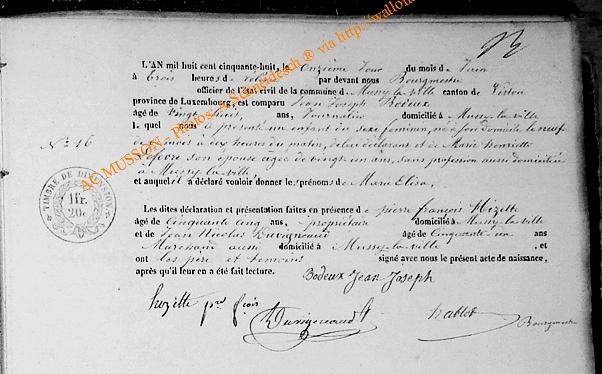 L'AN mil huit cent cinquante-huit, le onzième jour du mois de Juin
à trois heures de par devant nous Bourgmestre
officier de l'état civil de la commune de Mussy-la-ville canton de Virton
province de Luxembourg, est comparu Jean Joseph Bodeux
âgé de Vingt ans, Journalier domicilié à Mussy-la-ville
l. quel nous a présenté un enfant du sexe féminin, né à son domicile le neuf
N° 16
du mois à dix heures du matin, de lui déclarant et de Marie henriette
Lefevre son épouse agée de vingt un ans, sans profession aussi domiciliée
à Mussy-la-ville
et auquel il a déclaré vouloir donner les prénoms de Marie Elisa,
TIMBRE DE DIMENSION
1fr.
20c.
Les dites déclaration et présentation faites en présence de pierre françois Hizette
âgé de Cinquante Cinq ans, propriétaire domicilié à Mussy-la-ville
et de Jean Nicolas Duvigneaud âgé de Cinquante un ans
Marchand aussi domicilié à Mussy-la-ville , et
ont les père et temoins signé avec nous le présent acte de naissance,
après qu'il leur en a été fait lecture.
Bodeux Jean Joseph
hizette pre frçois
Duvigneaud
Bourgmestre
AC MUSSON - Photos A. Schandesch ® via http://wallo